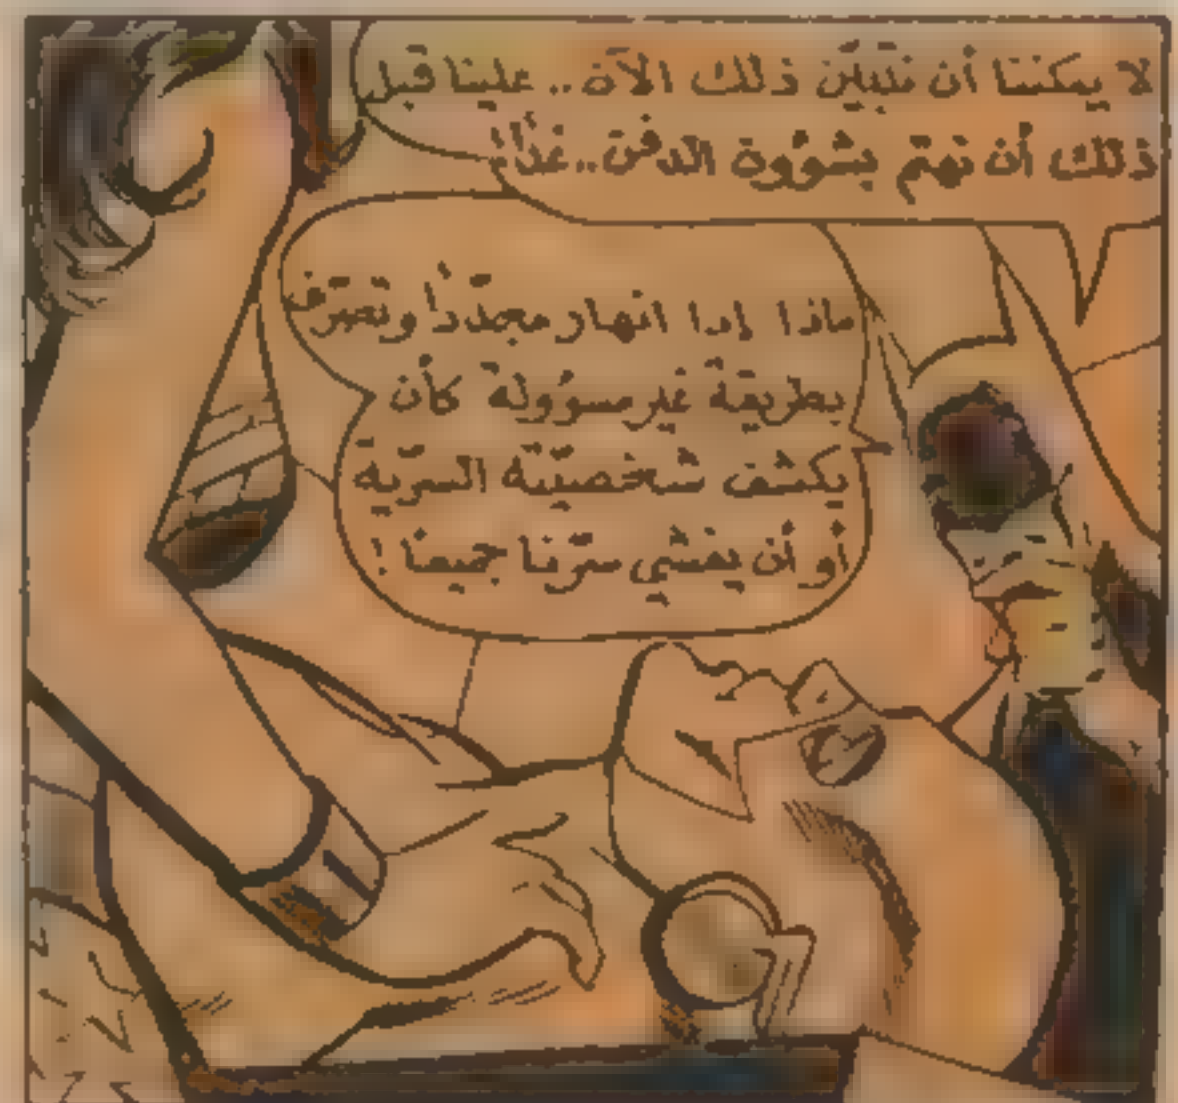 لا يمكننا أن نتبيّن ذلك الآن .. علينا قبل
ذلك أن نهتمّ بشؤون الدفن .. غدًا !
ماذا إذا انهار مجدّدًا وتصرّف
بطريقة غير مسؤولة كأن
يكشف شخصيّته السريّة
أو أن يفشي سرّنا جميعًا !